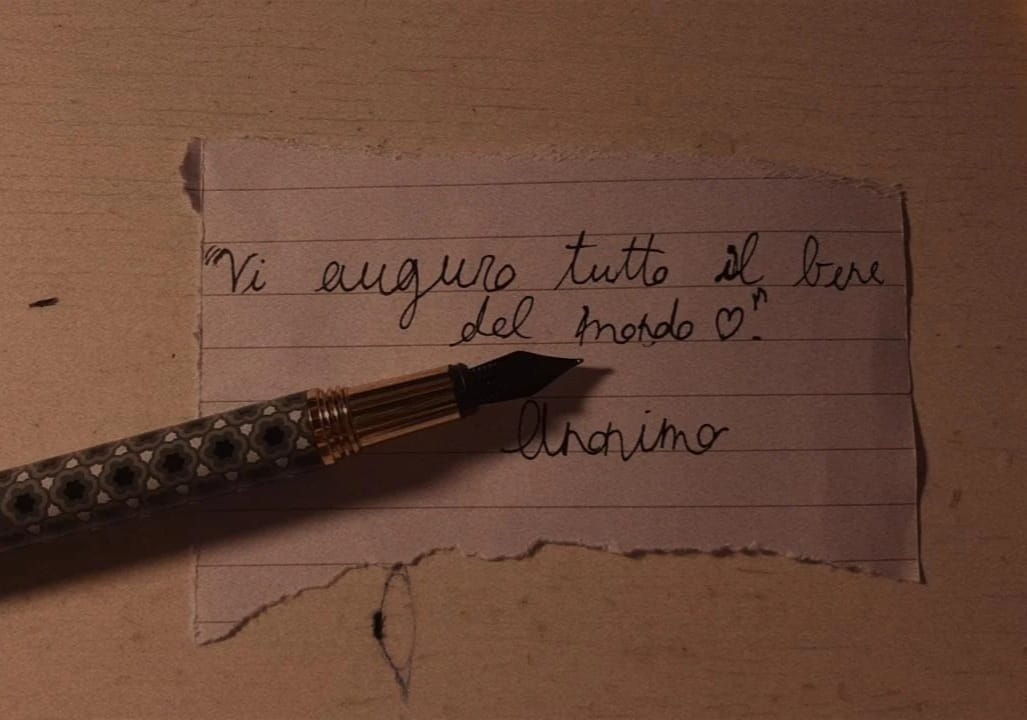 "Vi auguro tutto il bene
del mondo ♡".
Anonimo